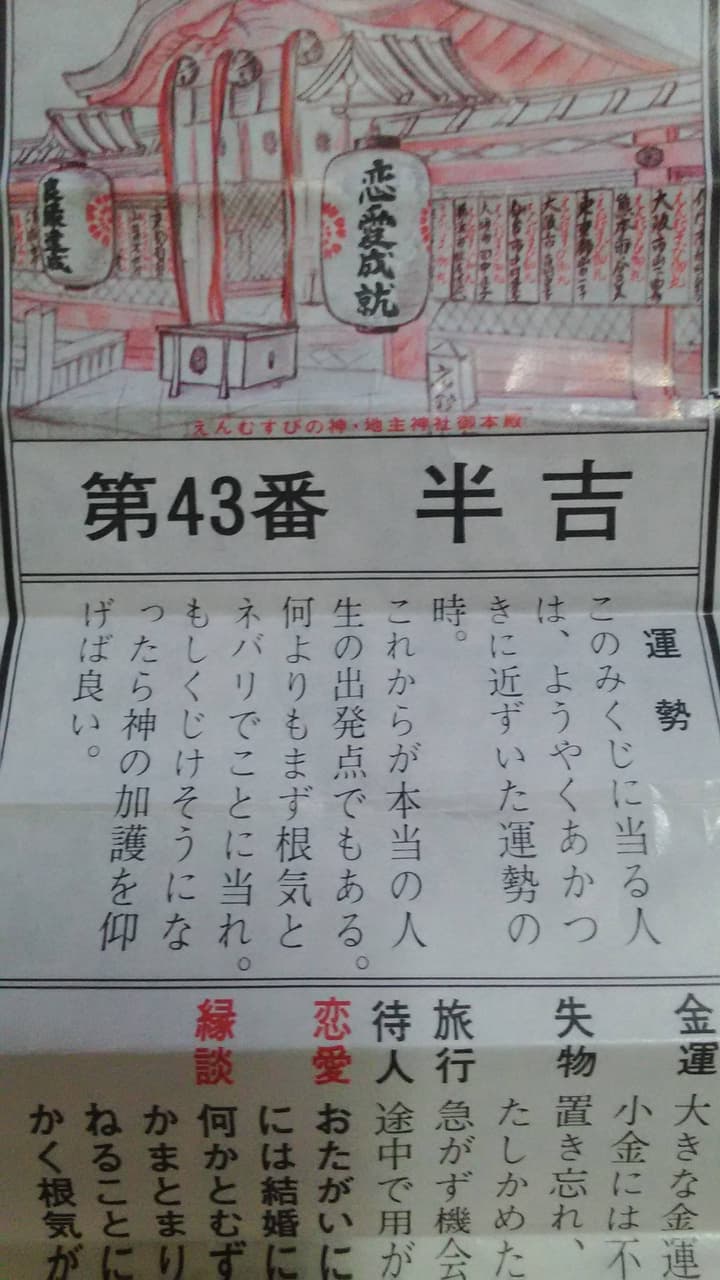 恋愛成就
えんむすびの神・地主神社御本殿
第43番 半吉
運勢
このみくじに当る人
は、ようやくあかつ
きに近ずいた運勢の
時。
これからが本当の人
生の出発点でもある。
何よりもまず根気と
ネバリでことに当れ。
もしくじけそうにな
ったら神の加護を仰
げば良い。
金運 大きな金運
小金には不
失物 置き忘れ、
たしかめた
旅行 急がず機会
待人 途中で用が
恋愛 おたがいに
には結婚に
縁談 何かとむず
かまとまり
ねることに
かく根気が